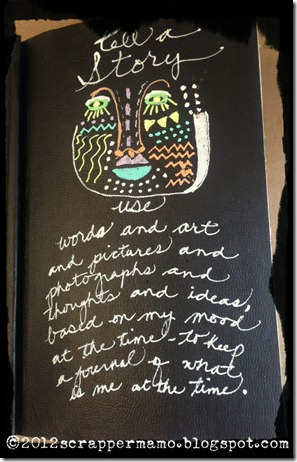 tell a
Story
use
words and art
and pictures and
photographs and
thoughts and ideas,
based on my mood
at the time - to keep
a journal of what
is me at the time.
©2012scrappermamo.blogspot.com